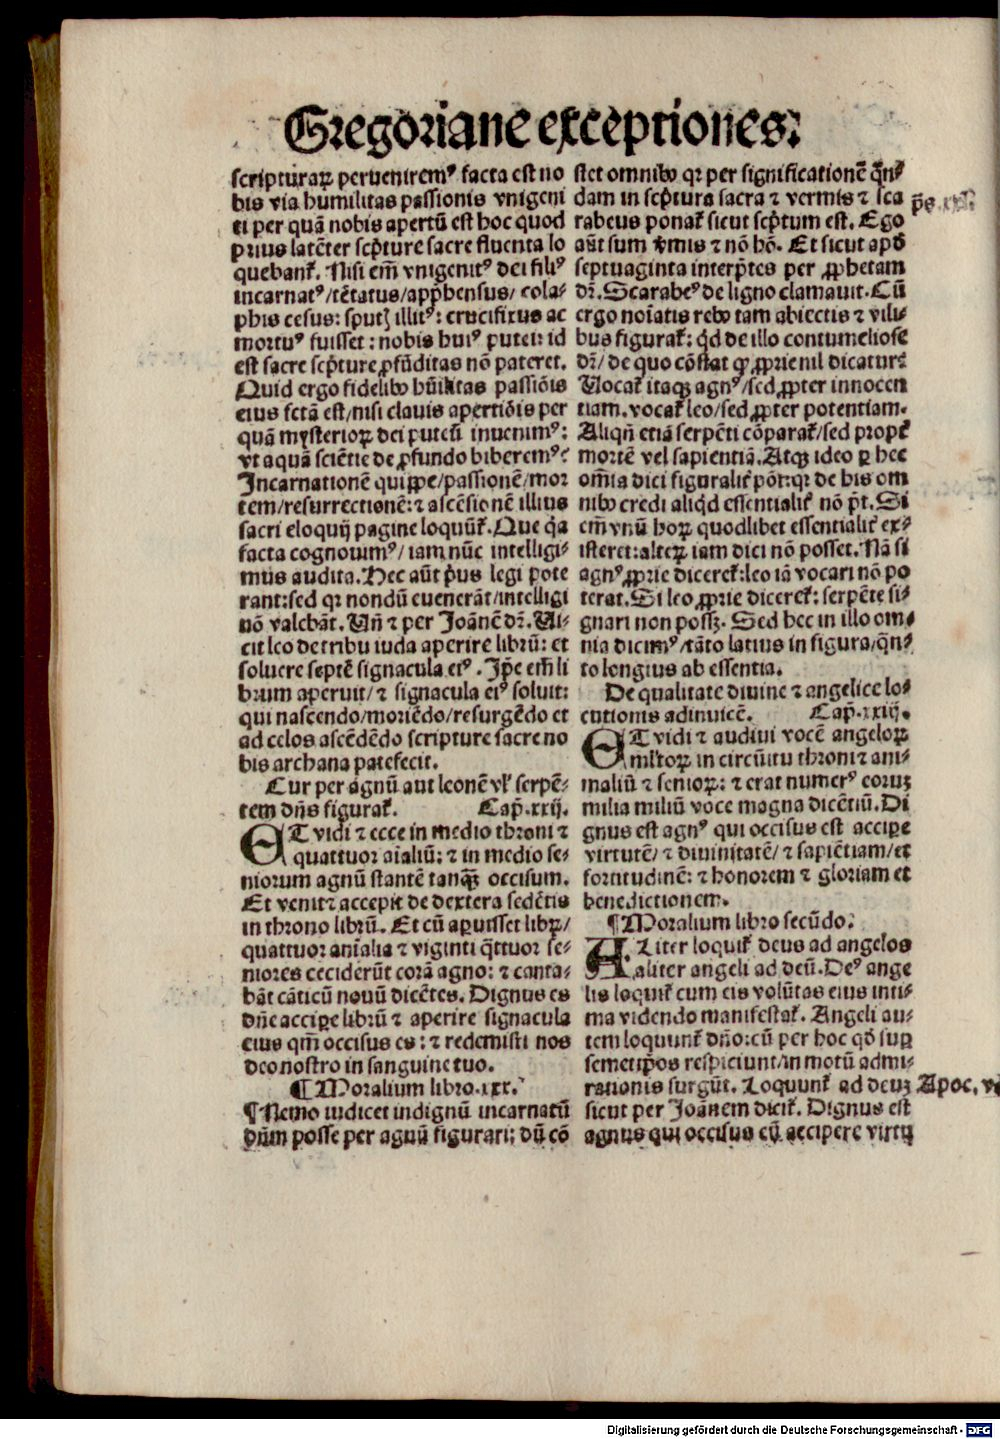 Gregoriane exceptiones.
scripturaꝝ perueniremꝰ facta est no
bis via humilitas passionis vnigeni
ti per quā nobis apertū est hoc quod
prius latēter scp̄ture sacre fluenta lo
quebant᷑. Nisi em̄ vnigenitꝰ dei filiꝰ
incarnatꝰ/tētatus/app̄hensus/ cola-
phis cesus: sputꝭ illitꝰ: crucifixus ac
mortuꝰ fuisset: nobis huiꝰ putei: id
est sacre scp̄ture ꝓfūditas nō pateret.
Quid ergo fidelibꝰ hūilitas passiōis
eius fctā est/nisi clauis apertiōis per
quā mysterioꝝ dei puteū inuenimꝰ:
vt aquā sciētie de ꝓfundo biberemꝰ?
Incarnationē quippe/passionē/mor
tem/resurrectionē: ⁊ ascēsionē illius
sacri eloquij pagine loquūt᷑. Que q̄a
facta cognouimꝰ/ iam nūc intelligi-
mus audita. Hec aūt p̄us legi pote
rant: sed qꝛ nondū euenerāt/intelligi
nō valebāt. Vn̄ ⁊ per Joānē dꝛ̄. Ui-
cit leo de tribu iuda aperire librū: et
soluere septē signacula eiꝰ. Ip̄e em̄ li
brum aperuit/ ⁊ signacula eiꝰ soluit:
qui nascendo/moriēdo/resurgēdo et
ad celos ascēdēdo scripture sacre no
bis archana patefecit.
Cur per agnū aut leonē vl̓ serpē-
tem dn̄s figurat᷑. Cap̄.xxij.
ET vidi ⁊ ecce in medio throni ⁊
quattuor aīaliū: ⁊ in medio se-
niorum agnū stantē tanqꝫ occisum.
Et venit ⁊ accepit de dextera sedētis
in throno librū. Et cū aꝑuisset libꝝ/
quattuor anīalia ⁊ viginti q̄ttuor se-
niores ceciderūt corā agno: ⁊ canta-
bāt cāticū nouū dicētes. Dignus es
dn̄e acciꝑe librū ⁊ aperire signacula
eius qm̄ occisus es: ⁊ redemisti nos
deo nostro in sanguine tuo.
¶ Moralium libro.xxx.
¶ Nemo iudicet indignū incarnatū
dn̄m posse per agnū figurari: dū cō
stet omnibꝰ qꝛ per significationē q̄n-
dam in scp̄tura sacra ⁊ vermis ⁊ sca
rabeus ponat᷑ sicut scp̄tum est. Ego
aūt sum v̄mis ⁊ nō hō. Et sicut apd̄
septuaginta interp̄tes per ꝓphetam
dꝛ̄. Scarabeꝰ de ligno clamauit. Cū
ergo noīatis rebꝰ tam abiectis ⁊ vili-
bus figurat᷑: qͥd de illo contumeliose
dꝛ̄/ de quo cōstat ꝙ ꝓprie nil dicatur?
Vocat᷑ itaqꝫ agnꝰ/sed ꝓpter innocen
tiam. vocat᷑ leo/sed ꝓpter potentiam.
Aliqn̄ etiā serpēti cōparat᷑/sed propt̄
mortē vel sapientiā. Atqꝫ ideo ꝑ hec
om̄ia dici figuralit᷑ pōt: qꝛ de his om
nibꝰ credi aliqͥd essentialit᷑ nō p̄t. Si
em̄ vnū hoꝝ quodlibet essentialit᷑ ex-
isteret: alteꝝ iam dici nō posset. Nā si
agnꝰ ꝓprie diceret᷑: leo iā vocari nō po
terat. Si leo ꝓprie diceret᷑: serpēte si-
gnari non possꝫ. Sed hec in illo om-
nia dicimꝰ/tāto latius in figura/q̄n-
to longius ab essentia.
De qualitate diuine ⁊ angelice lo-
cutionis adinuicē. Cap̄.xxiij.
ET vidi ⁊ audiui vocē angeloꝝ
ml̓toꝝ in circūitu throni ⁊ ani-
maliū ⁊ senioꝝ: ⁊ erat numerꝰ eoruꝫ
milia miliū voce magna dicētiū. Di
gnus est agnꝰ qui occisus est acciꝑe
virtutē/ ⁊ diuinitatē/ ⁊ sapiētiam/et
fortitudinē: ⁊ honorem ⁊ gloriam et
benedictionem.
¶ Moralium libro secūdo.
ALiter loquit᷑ deus ad angelos
aliter angeli ad deū. Deꝰ ange
lis loquit᷑ cum eis volūtas eius inti-
ma videndo manifestat᷑. Angeli au-
tem loquunt᷑ dn̄o: cū per hoc qd̄ suꝑ
semetip̄os respiciunt/in motū admi-
rationis surgūt. Loquunt᷑ ad deuꝫ
sicut per Joānem dicit᷑. Dignus est
agnus qui occisus est accipere virtu
p̄s.xxi.
Apoc. v
Digitalisierung gefördert durch die Deutsche Forschungsgemeinschaft - DFG